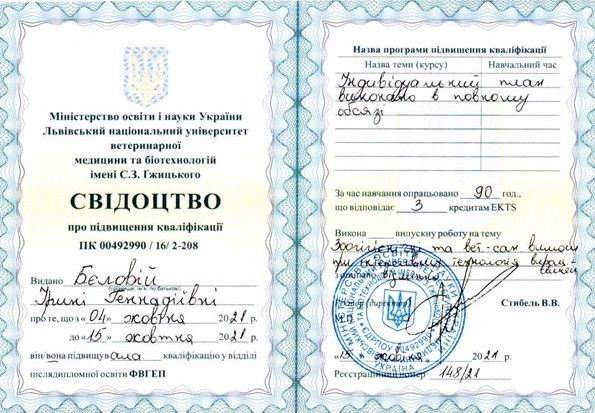 Міністерство освіти і науки України
Львівський національний університет
ветеринарної
медицини та біотехнологій
імені С.З. Ґжицького
СВІДОЦТВО
про підвищення кваліфікації
ПК 00492990 / 16/ 2-208
Видано Бєловій
Ірині Геннадіївні
про те, що з «04» жовтня 2021 р.
до «15» жовтня 2021 р.
він/вона підвищувала кваліфікацію у відділі
післядипломної освіти ФВГЕП
Назва програми підвищення кваліфікації
Назва теми (курсу) Навчальний час
Індивідуальний план
виконано в повному
обсязі
За час навчання опрацьовано 90 год.,
що відповідає 3 кредитам EKTS
Виконав випускну роботу на тему
Зоогігієнічні та вет.-сан. вимоги
при
з оцінкою відмінно
Стибель В.В.
М.П.
«15» жовтня 2021 р.
Реєстраційний номер 148/21
УКРАЇНА